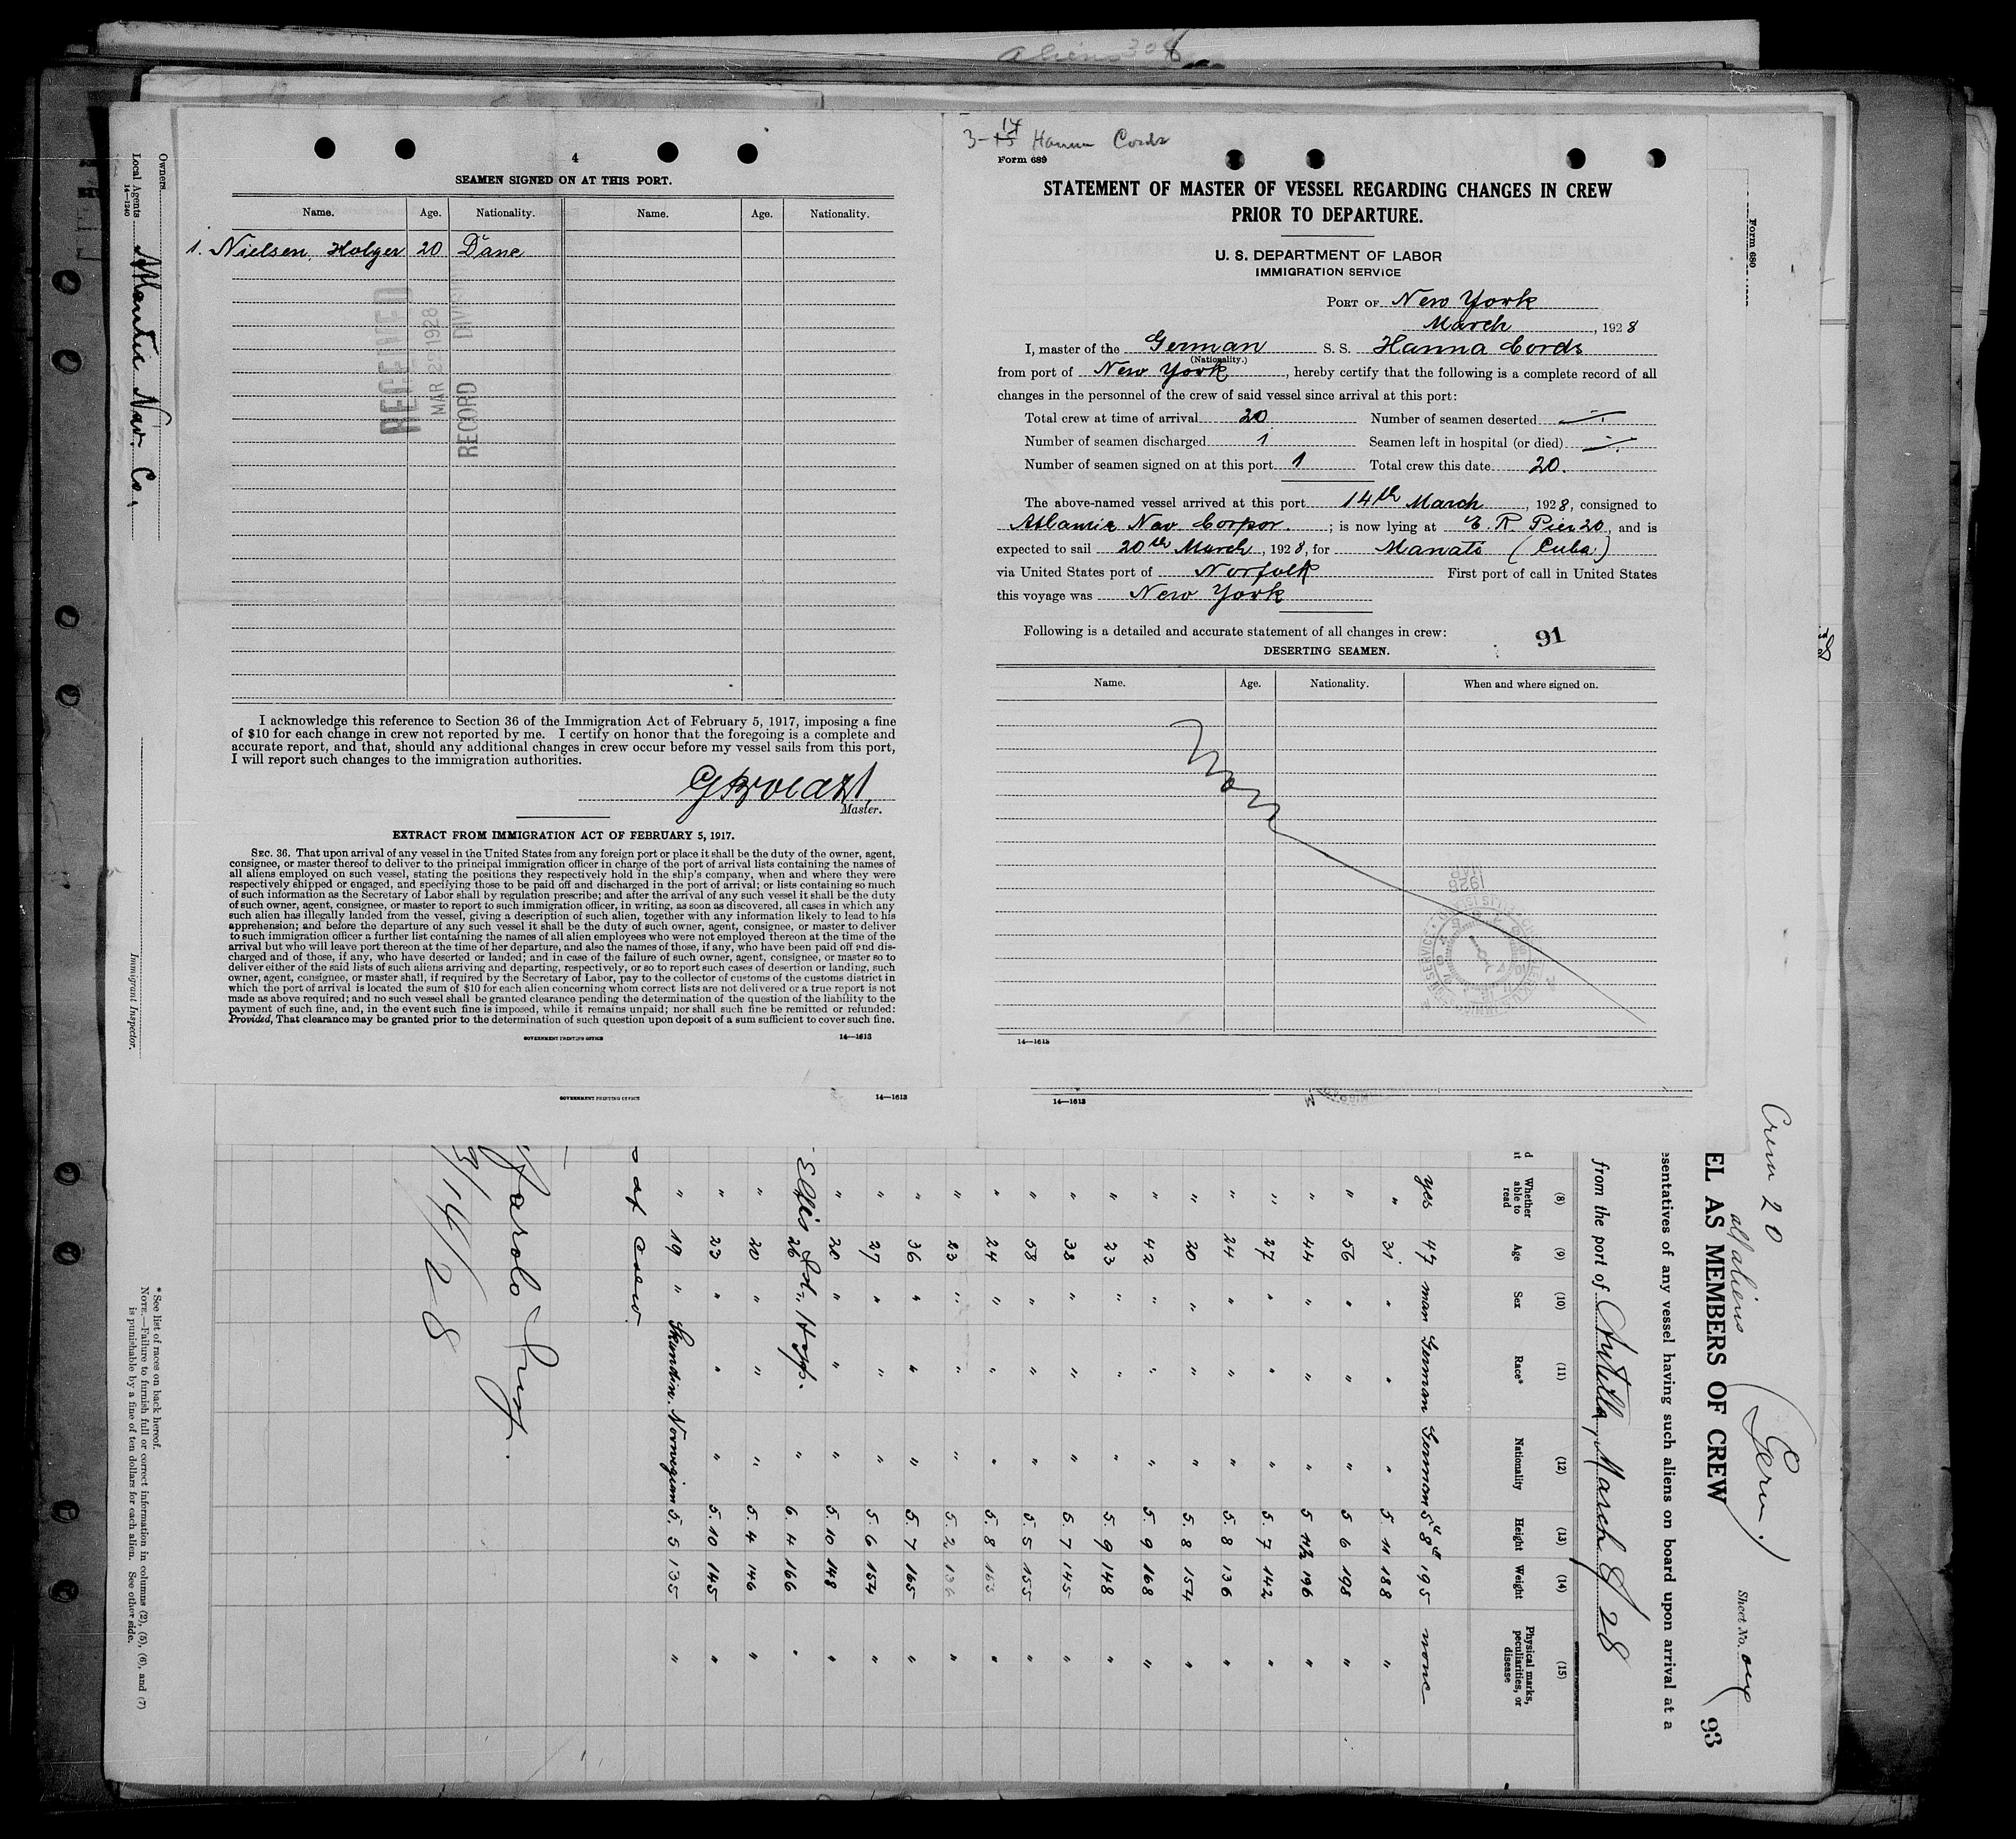 Aliens 30
4
SEAMEN SIGNED ON AT THIS PORT.
Name. Age. Nationality. Name. Age. Nationality.
1. Nielsen, Holger 20 Dane
RECEIVED
MAR 22 1928
RECORD DIVI
I acknowledge this reference to Section 36 of the Immigration Act of February 5, 1917, imposing a fine
of $10 for each change in crew not reported by me. I certify on honor that the foregoing is a complete and
accurate report, and that, should any additional changes in crew occur before my vessel sails from this port,
I will report such changes to the immigration authorities.
Master.
EXTRACT FROM IMMIGRATION ACT OF FEBRUARY 5, 1917.
SEC. 36. That upon arrival of any vessel in the United States from any foreign port or place it shall be the duty of the owner, agent,
consignee, or master thereof to deliver to the principal immigration officer in charge of the port of arrival lists containing the names of
all aliens employed on such vessel, stating the positions they respectively hold in the ship's company, when and where they were
respectively shipped or engaged, and specifying those to be paid off and discharged in the port of arrival; or lists containing so much
of such information as the Secretary of Labor shall by regulation prescribe; and after the arrival of any such vessel it shall be the duty
of such owner, agent, consignee, or master to report to such immigration officer, in writing, as soon as discovered, all cases in which any
such alien has illegally landed from the vessel, giving a description of such alien, together with any information likely to lead to his
apprehension; and before the departure of any such vessel it shall be the duty of such owner, agent, consignee, or master to deliver
to such immigration officer a further list containing the names of all alien employees who were not employed thereon at the time of the
arrival but who will leave port thereon at the time of her departure, and also the names of those, if any, who have been paid off and dis-
charged and of those, if any, who have deserted or landed; and in case of the failure of such owner, agent, consignee, or master so to
deliver either of the said lists of such aliens arriving and departing, respectively, or so to report such cases of desertion or landing, such
owner, agent, consignee, or master shall, if required by the Secretary of Labor, pay to the collector of customs of the customs district in
which the port of arrival is located the sum of $10 for each alien concerning whom correct lists are not delivered or a true report is not
made as above required; and no such vessel shall be granted clearance pending the determination of the question of the liability to the
payment of such fine, and, in the event such fine is imposed, while it remains unpaid; nor shall such fine be remitted or refunded:
Provided, That clearance may be granted prior to the determination of such question upon deposit of a sum sufficient to cover such fine.
GOVERNMENT PRINTING OFFICE 14—1613
3-15 14 Hanna Cords
Form 689
STATEMENT OF MASTER OF VESSEL REGARDING CHANGES IN CREW
PRIOR TO DEPARTURE.
U. S. DEPARTMENT OF LABOR
IMMIGRATION SERVICE
PORT OF New York
March, 1928
I, master of the German S. S. Hanna Cords
(Nationality.)
from port of New York, hereby certify that the following is a complete record of all
changes in the personnel of the crew of said vessel since arrival at this port:
Total crew at time of arrival 20 Number of seamen deserted ÷
Number of seamen discharged 1 Seamen left in hospital (or died) ÷
Number of seamen signed on at this port 1 Total crew this date 20.
The above-named vessel arrived at this port 14th March, 1928, consigned to
Atlantic Nav Corpor.; is now lying at E. R Pier 20, and is
expected to sail 20th March, 1928, for Manati (Cuba)
via United States port of Norfolk First port of call in United States
this voyage was New York
Following is a detailed and accurate statement of all changes in crew: 91
DESERTING SEAMEN.
Name. Age. Nationality. When and where signed on.
14—1613
GOVERNMENT PRINTING OFFICE 14—1613
14—1613
Form 680
Owners
Local Agents Atlantic Nav. Co.
14—1240
Immigrant Inspector.
Crew 20
all aliens (Germ.)
Sheet No. one 93
EL AS MEMBERS OF CREW
esentatives of any vessel having such aliens on board upon arrival at a
from the port of Antilla, March 8 28
(8) (9) (10) (11) (12) (13) (14) (15)
Whether able to read Age Sex Race* Nationality Height Weight Physical marks, peculiarities, or disease
yes 47 man German German 5" 8" 195 none
" 31 " " " 5 11 188 "
" 56 " " " 5 6 198 "
" 44 " " " 5 11½ 196 "
" 27 " " " 5. 7 142 "
" 24 " " " 5. 8 136 "
" 20 " " " 5. 8 154 "
" 42 " " " 5. 9 168 "
" 23 " " " 5. 9 148 "
" 38 " " " 5. 7 145 "
" 58 " " " 5. 5 155 "
" 24 " " " 5. 8 163 "
" 23 " " " 5. 2 136 "
" 36 " " " 5. 7 165 "
" 27 " " " 5. 6 154 "
" 20 " " " 5. 10 148 "
Ellis 26 Isl. Hosp. " 6. 4 166 "
" 20 " " " 5. 4 146 "
" 23 " " " 5. 10 145 "
" 19 " Skandin. Norwegian 5. 5 135 "
of crew
3/14/28
* See list of races on back hereof.
NOTE.—Failure to furnish full or correct information in columns (2), (5), (6), and (7)
is punishable by a fine of ten dollars for each alien. See other side.